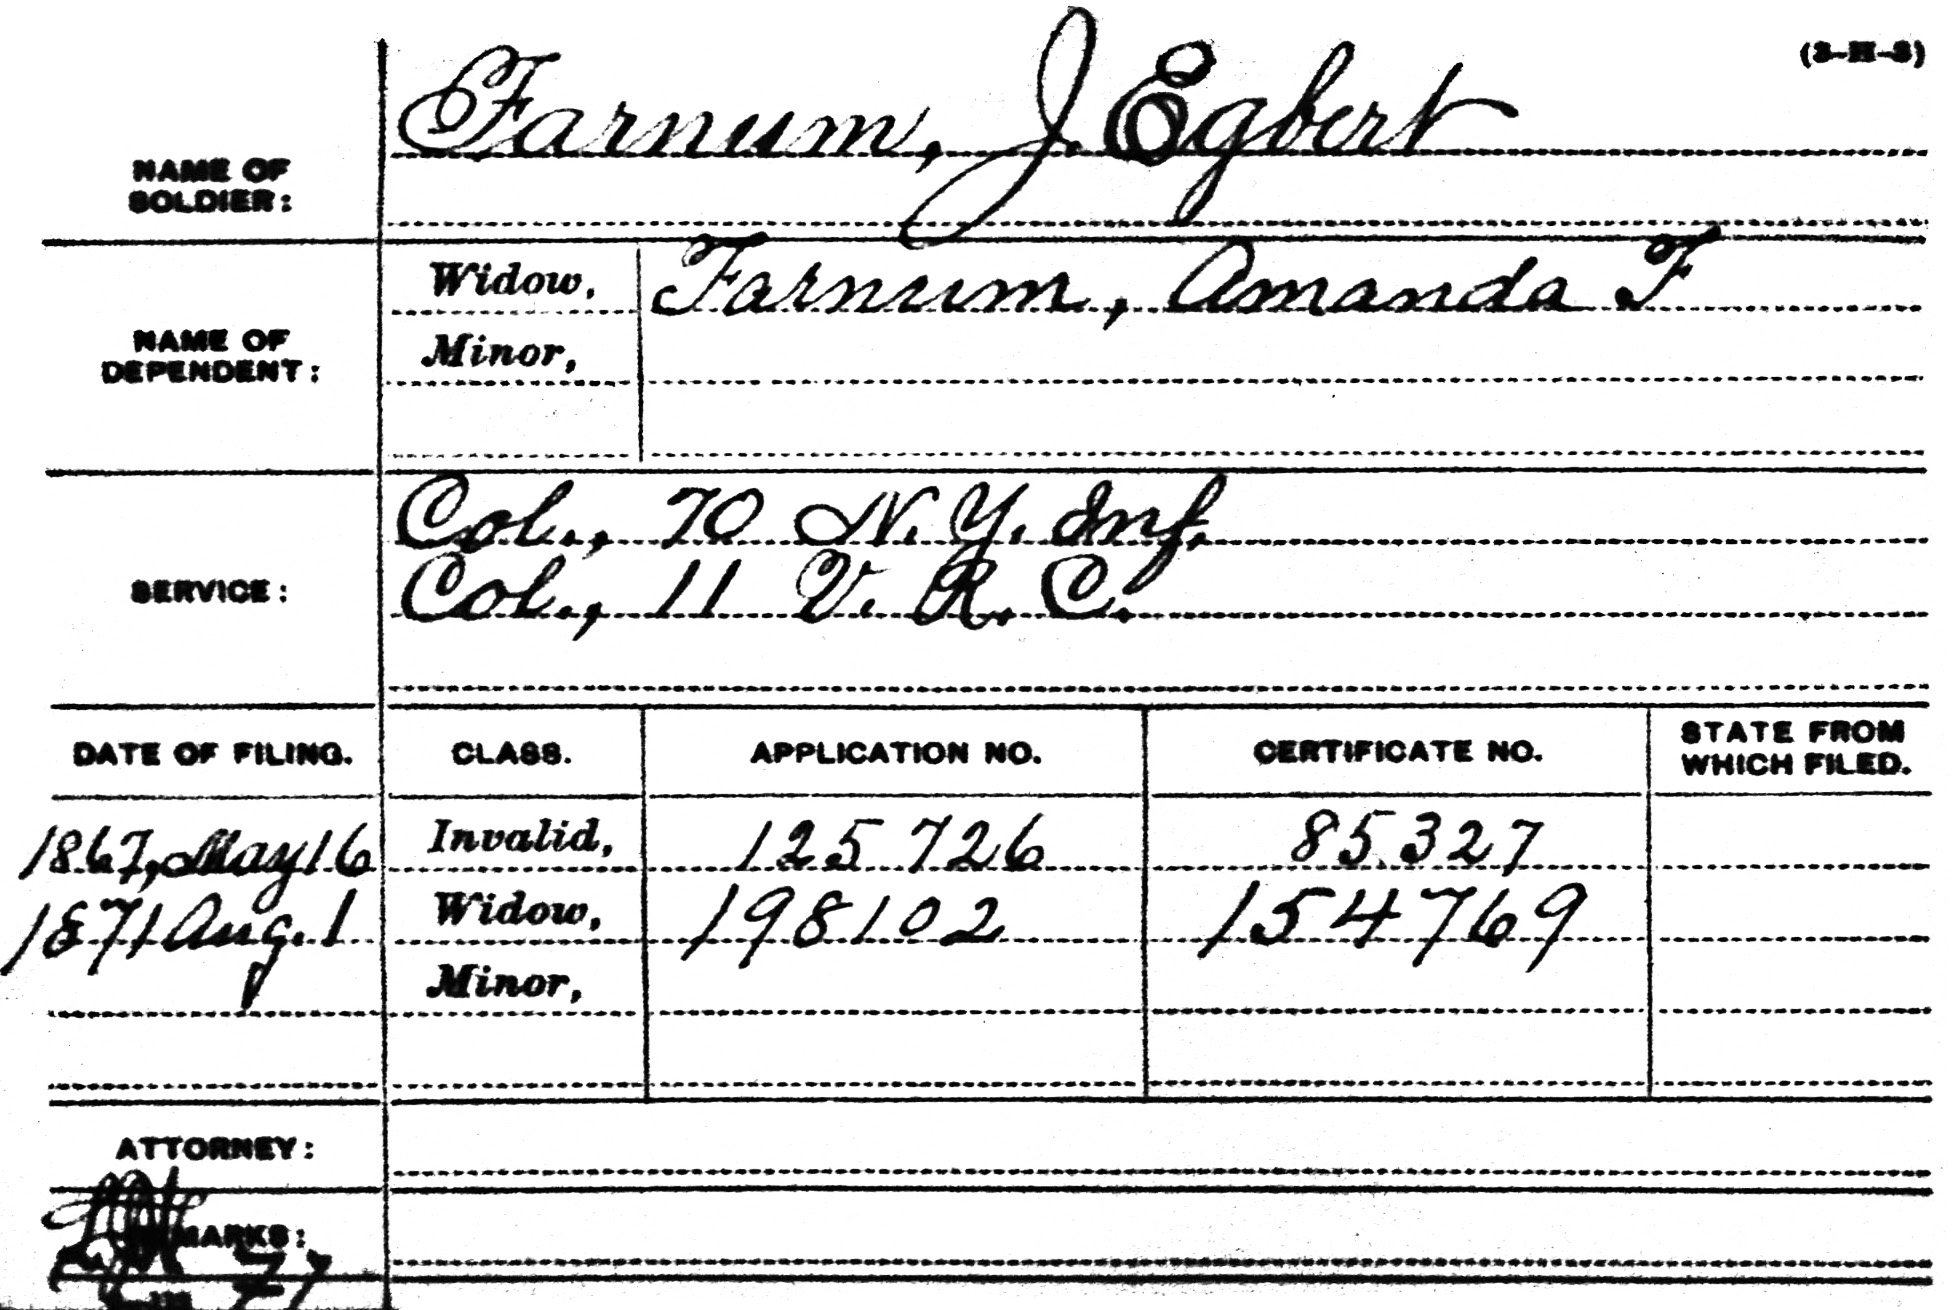 (3-H-3)
Farnum, J. Egbert
NAME OF
SOLDIER:
NAME OF
DEPENDENT:
Widow, Farnum, Amanda F
Minor,
SERVICE:
Col., 70 N. Y. Inf.
Col., 11 V. R. C.
DATE OF FILING. CLASS. APPLICATION NO. CERTIFICATE NO. STATE FROM
WHICH FILED.
1867, May 16 Invalid, 125 726 85327
1871 Aug. 1 Widow, 198102 154769
Minor,
ATTORNEY: